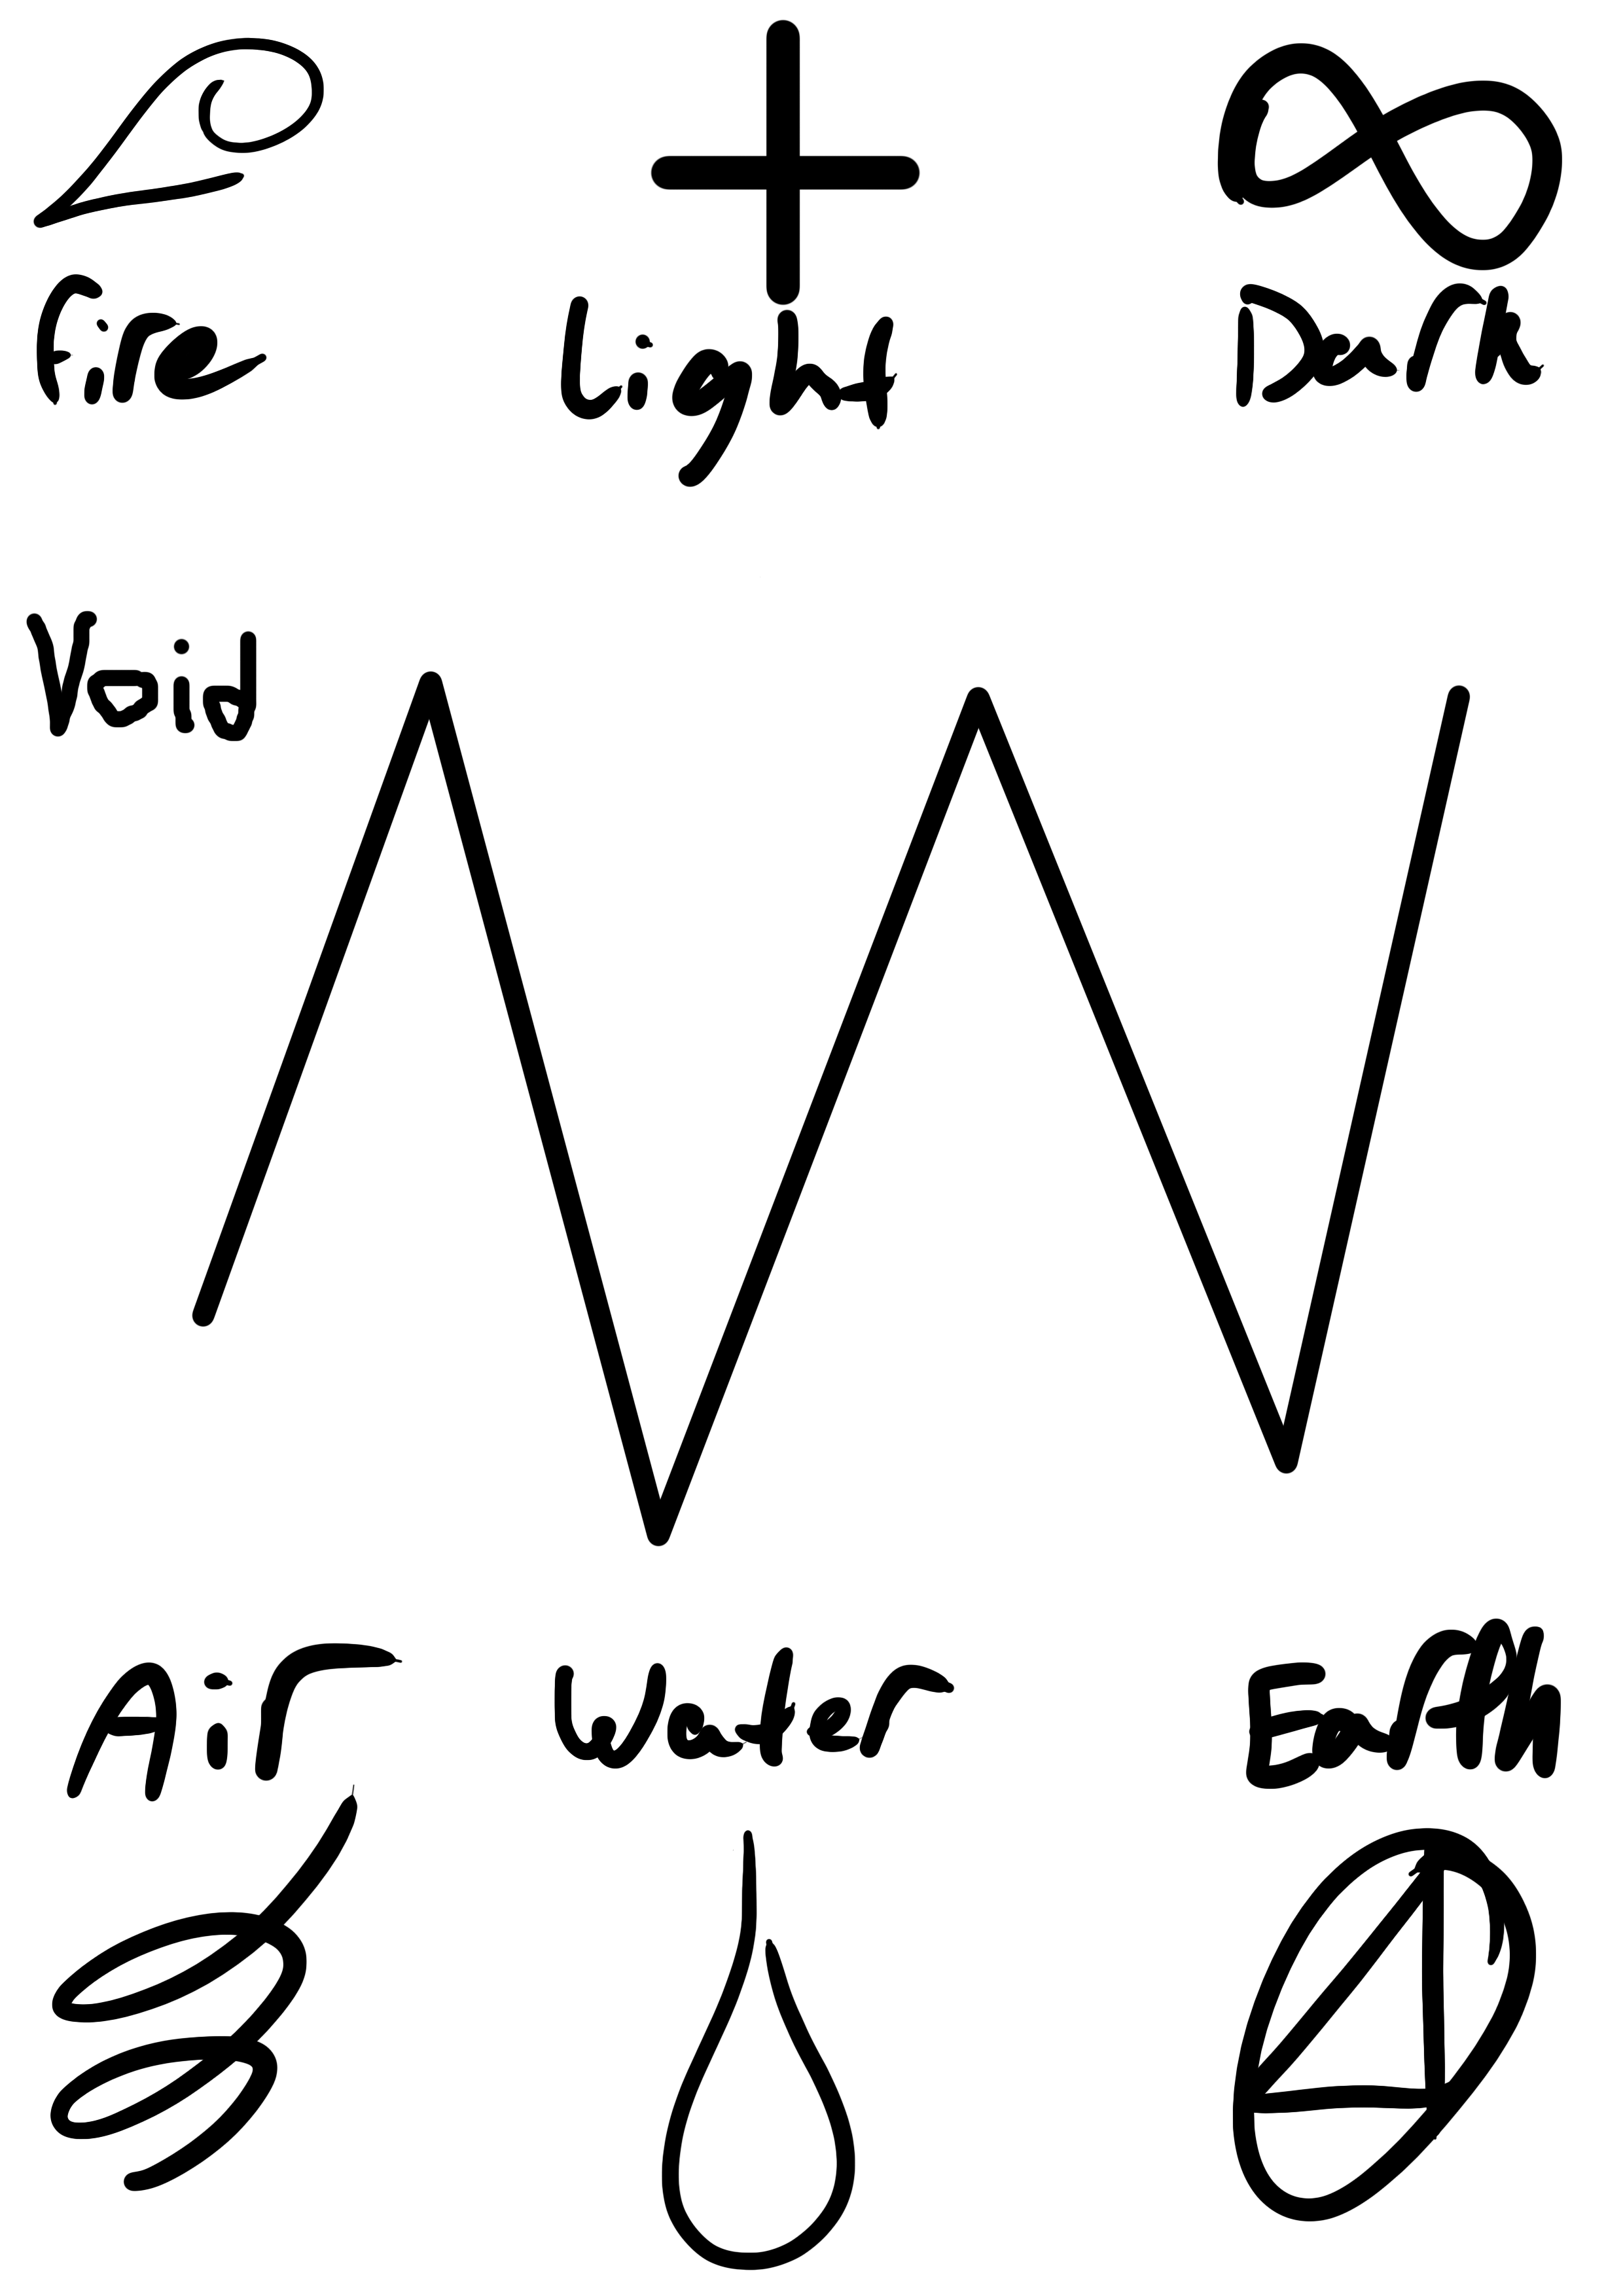 Fire Light Dark
Void
Air Water Earth